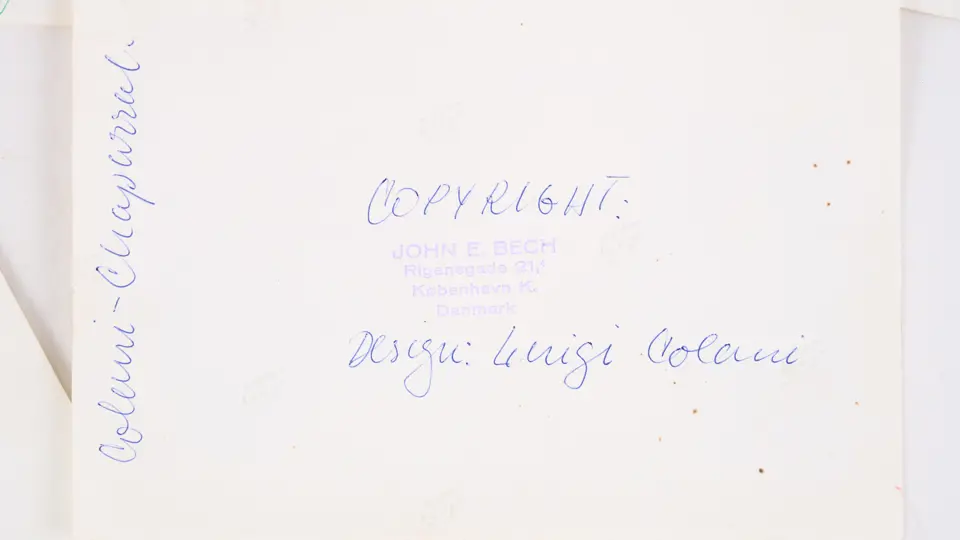 Colani-Chaparral.
COPYRIGHT:
JOHN E. BECH
Rigensgade 21,
København K.
Danmark
Design: Luigi Colani